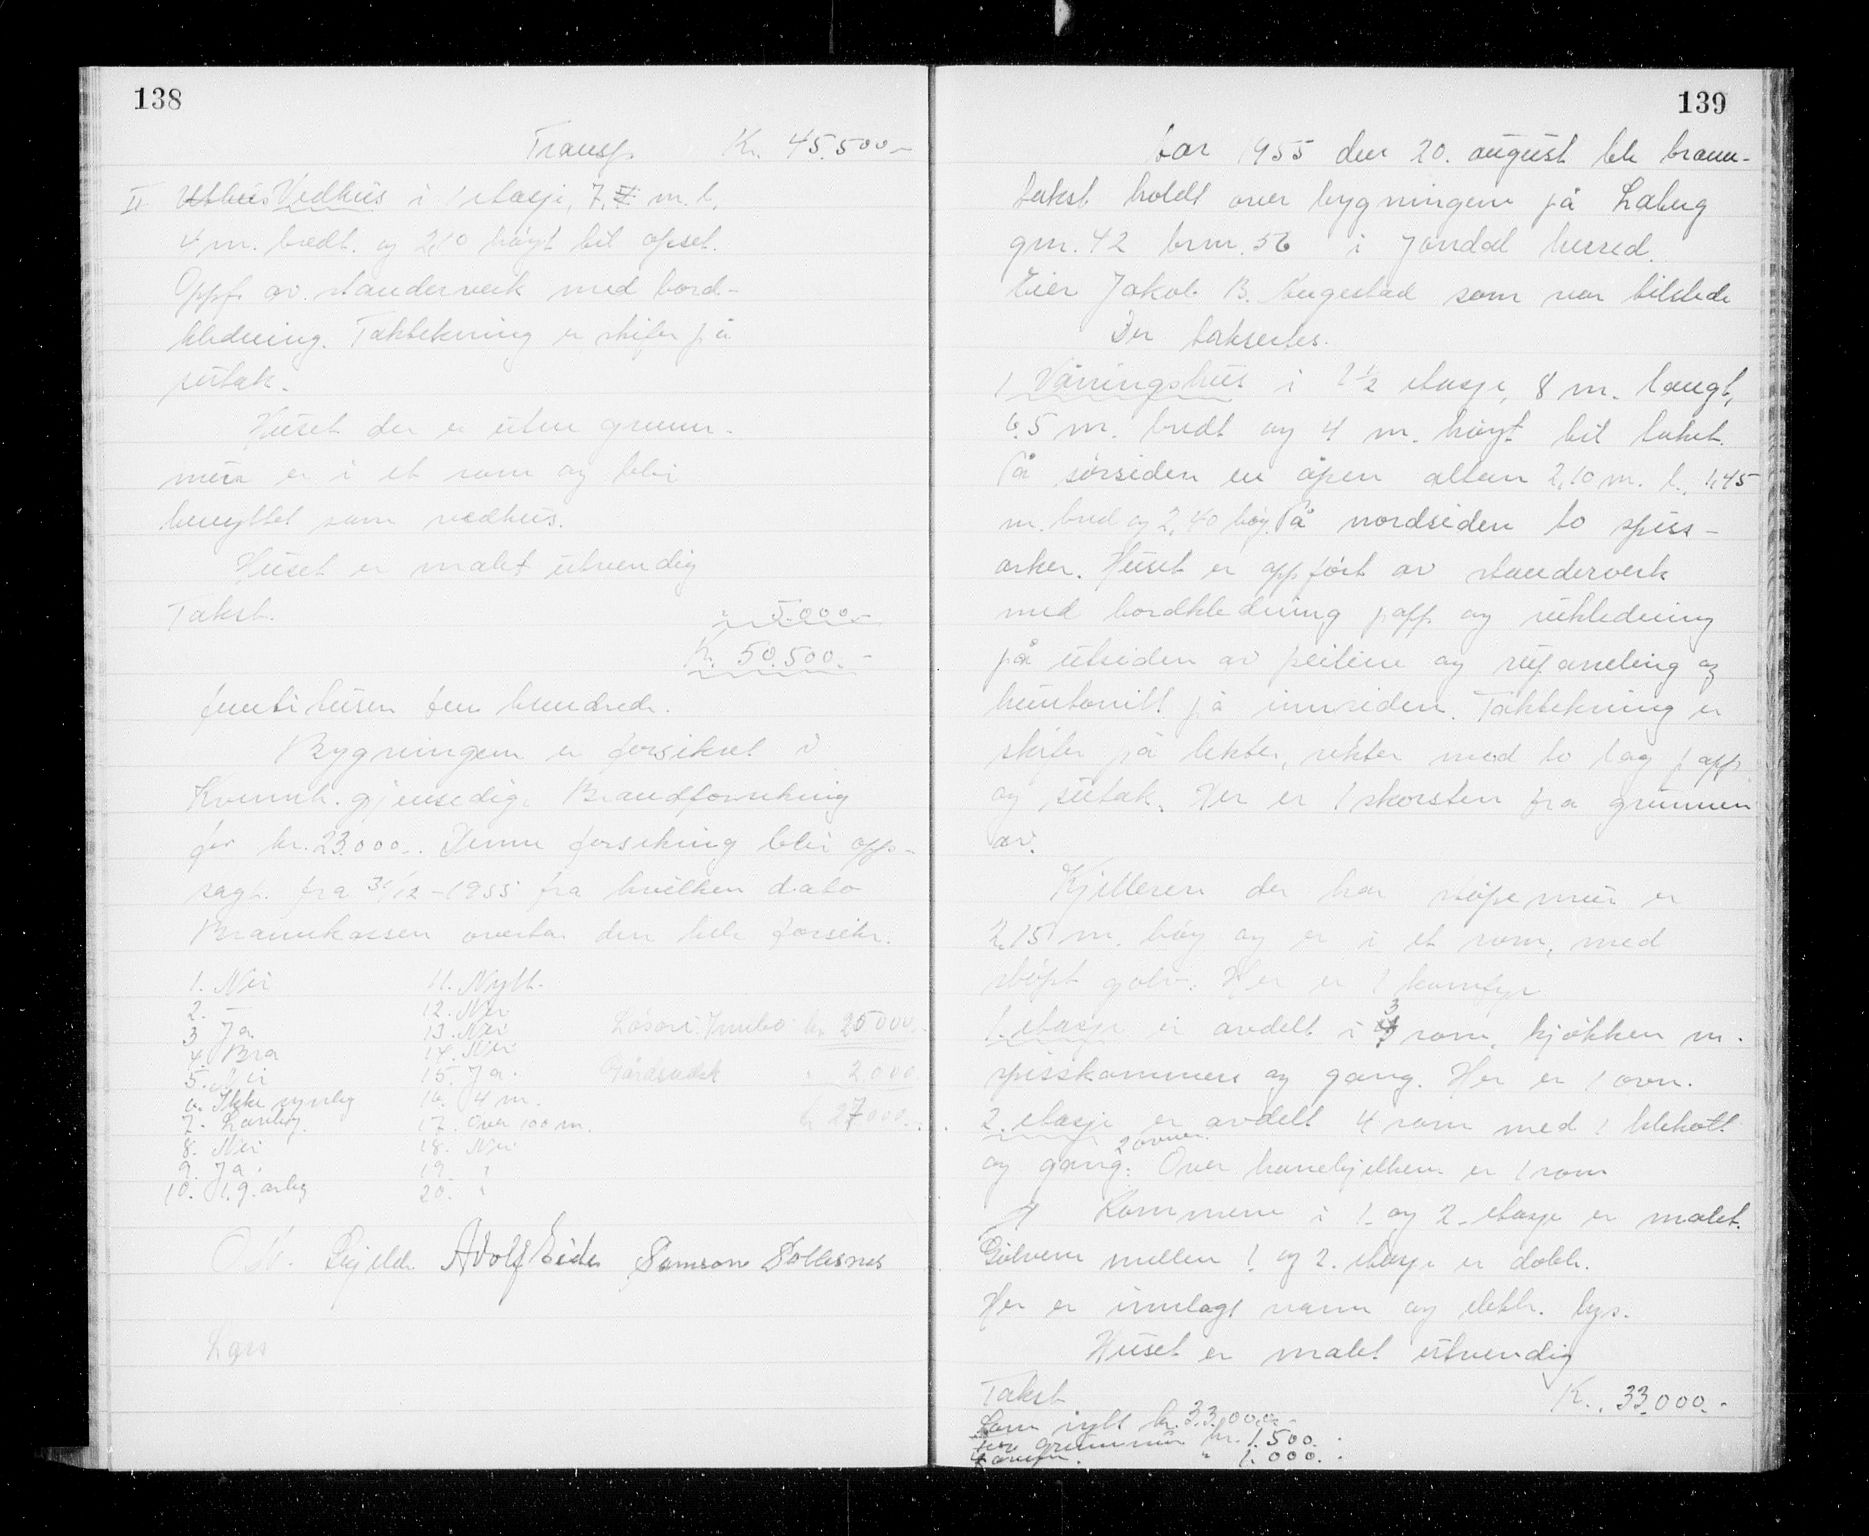 138
Transp. Kr. 45.500-
II Uthus Vedhus i 1 etasje, 7, m. l.
4 m. bredt og 2,10 høyt til opset.
Oppf. av standerverk med bord-
kledning. Taktekning er skifer på
sutak.
Huset der er uten grunn-
mur er i et rom og blir
benyttet som vedhus.
Huset er malt utvendig
Takst. " 5.000.-
Kr. 50.500.-
femti tusen fem hundrede.
Bygningen er forsikret i
Kvinnh. gjensedige Brandforsikring
for kr. 23.000.-. Denne forsikring blir opp-
sagt. fra 31/12-1955 fra hvilken dato
Brannkassen overtar den hele forsikr.
1. Nei 11. Nytt.
2. — 12. Nei
3 Ja 13. Nei Løsøre Innbo kr 25000.-
4. Bra 14. Nei
5. Nei 15. Ja. Gårdsredsk " 2.000
6. Ikke synlig 16. 4 m.
7. 17. Over 100 m. kr 27000.-
8. Nei 18. Nei
9. Ja. 19. "
10. 1.g. årlig 20. "
Adolf Eide Samson Sollesnes
Lars
139
Aar 1955 den 20. august ble brann-
takst holdt over bygningene på
gnr. 42 brnr. 56 i Jondal herred.
Eier Jakob B. som var tilstede
Der taksertes.
1 Våningshus i 1 1/2 etasje, 8 m. langt,
6,5 m. bredt og 4 m. høyt til taket.
På sørsiden en åpen altan 2,10 m. l. 1,45
m. bred og 2,40 høy. På nordsiden to spiss-
arker. Huset er oppført av standerverk
med bordkledning papp og rukledning
på utsiden av peitine og rupaneling og
huntonitt på innsiden. Taktekning er
skifer på lekter, rekter med to lag papp
og sutak. Her er 1 skorsten fra grunnen
av.
Kjelleren der har støpemur er
2,15 m. høy og er i et rom, med
støpt golv. Her er 1 komfyr
1. etasje er avdelt i 3 rom, kjøkken m.
spisskammers og gang. Her er 1 ovn.
2. etasje er avdelt 4 rom med 1 klekott
og gang. 2 ovner. Over hanebjelken er 1 rom
Rommene i 1. og 2. etasje er malet.
Golvene mellem 1. og 2. etasje er dobb.
Her er innlagt vann og elektr. lys.
Huset er malet utvendig
Takst Kr. 33.000.-
Som nytt kr. 33.000.-
grunnmur kr. 1.500.-
" 1.000.-